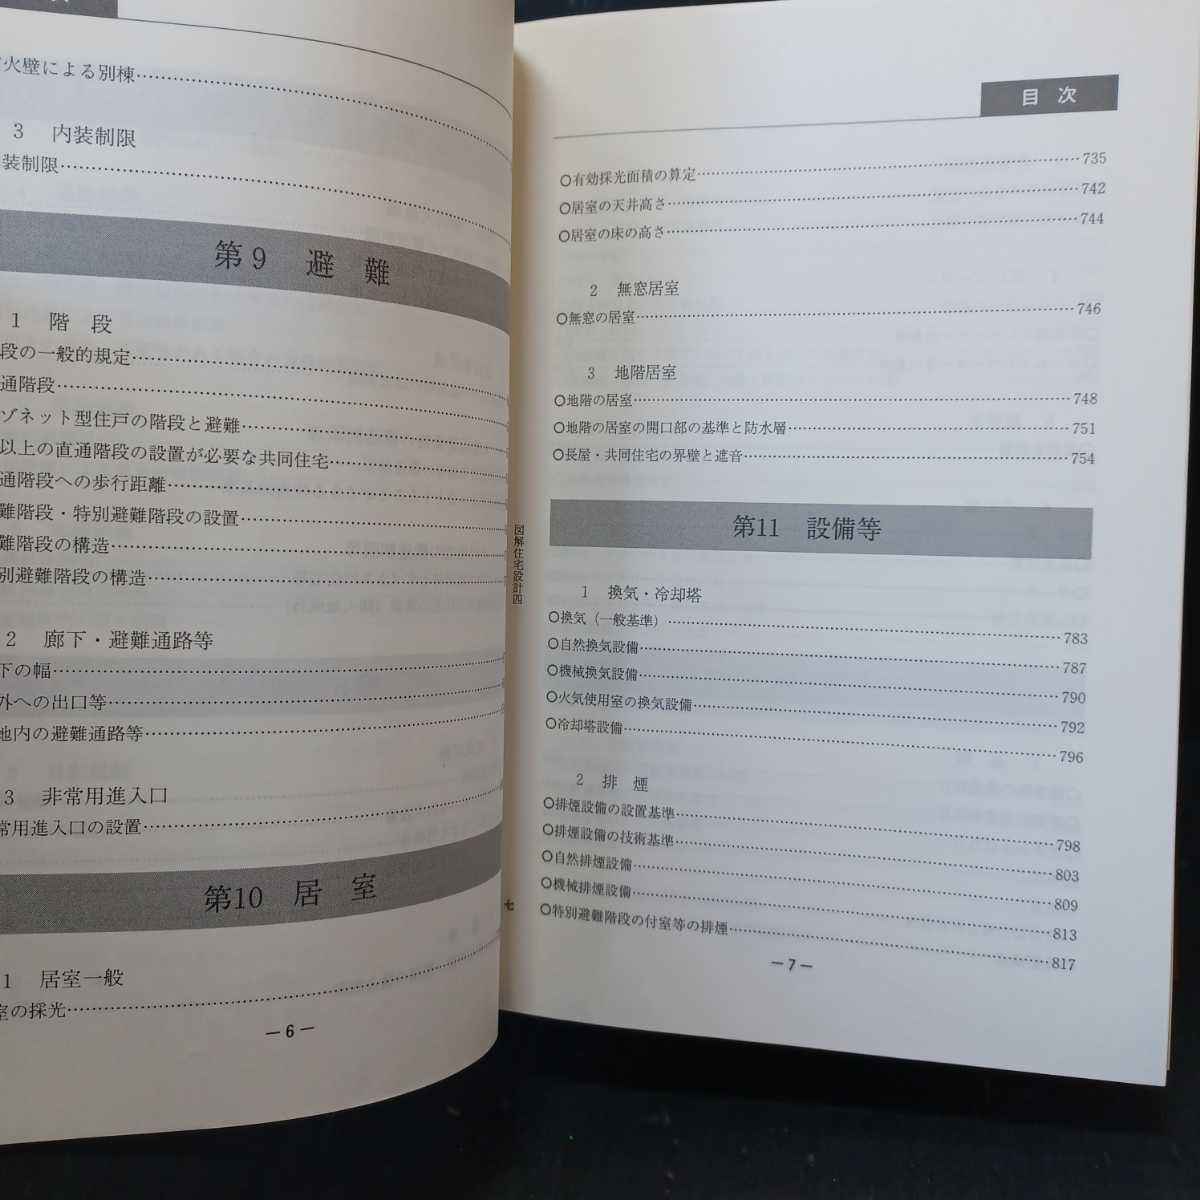 火壁による別棟
3 内装制限
装制限
第9 避難
1 階段
段の一般的規定
通階段
ゾネット型住戸の階段と避難
以上の直通階段の設置が必要な共同住宅
通階段への歩行距離
難階段・特別避難階段の設置
難階段の構造
別避難階段の構造
2 廊下・避難通路等
下の幅
外への出口等
地内の避難通路等
3 非常用進入口
常用進入口の設置
第10 居室
1 居室一般
室の採光
—6—
図解住宅設計四
七
目次
○有効採光面積の算定 735
○居室の天井高さ 742
○居室の床の高さ 744
2 無窓居室
○無窓の居室 746
3 地階居室
○地階の居室 748
○地階の居室の開口部の基準と防水層 751
○長屋・共同住宅の界壁と遮音 754
第11 設備等
1 換気・冷却塔
○換気（一般基準） 783
○自然換気設備 787
○機械換気設備 790
○火気使用室の換気設備 792
○冷却塔設備 796
2 排煙
○排煙設備の設置基準 798
○排煙設備の技術基準 803
○自然排煙設備 809
○機械排煙設備 813
○特別避難階段の付室等の排煙 817
—7—